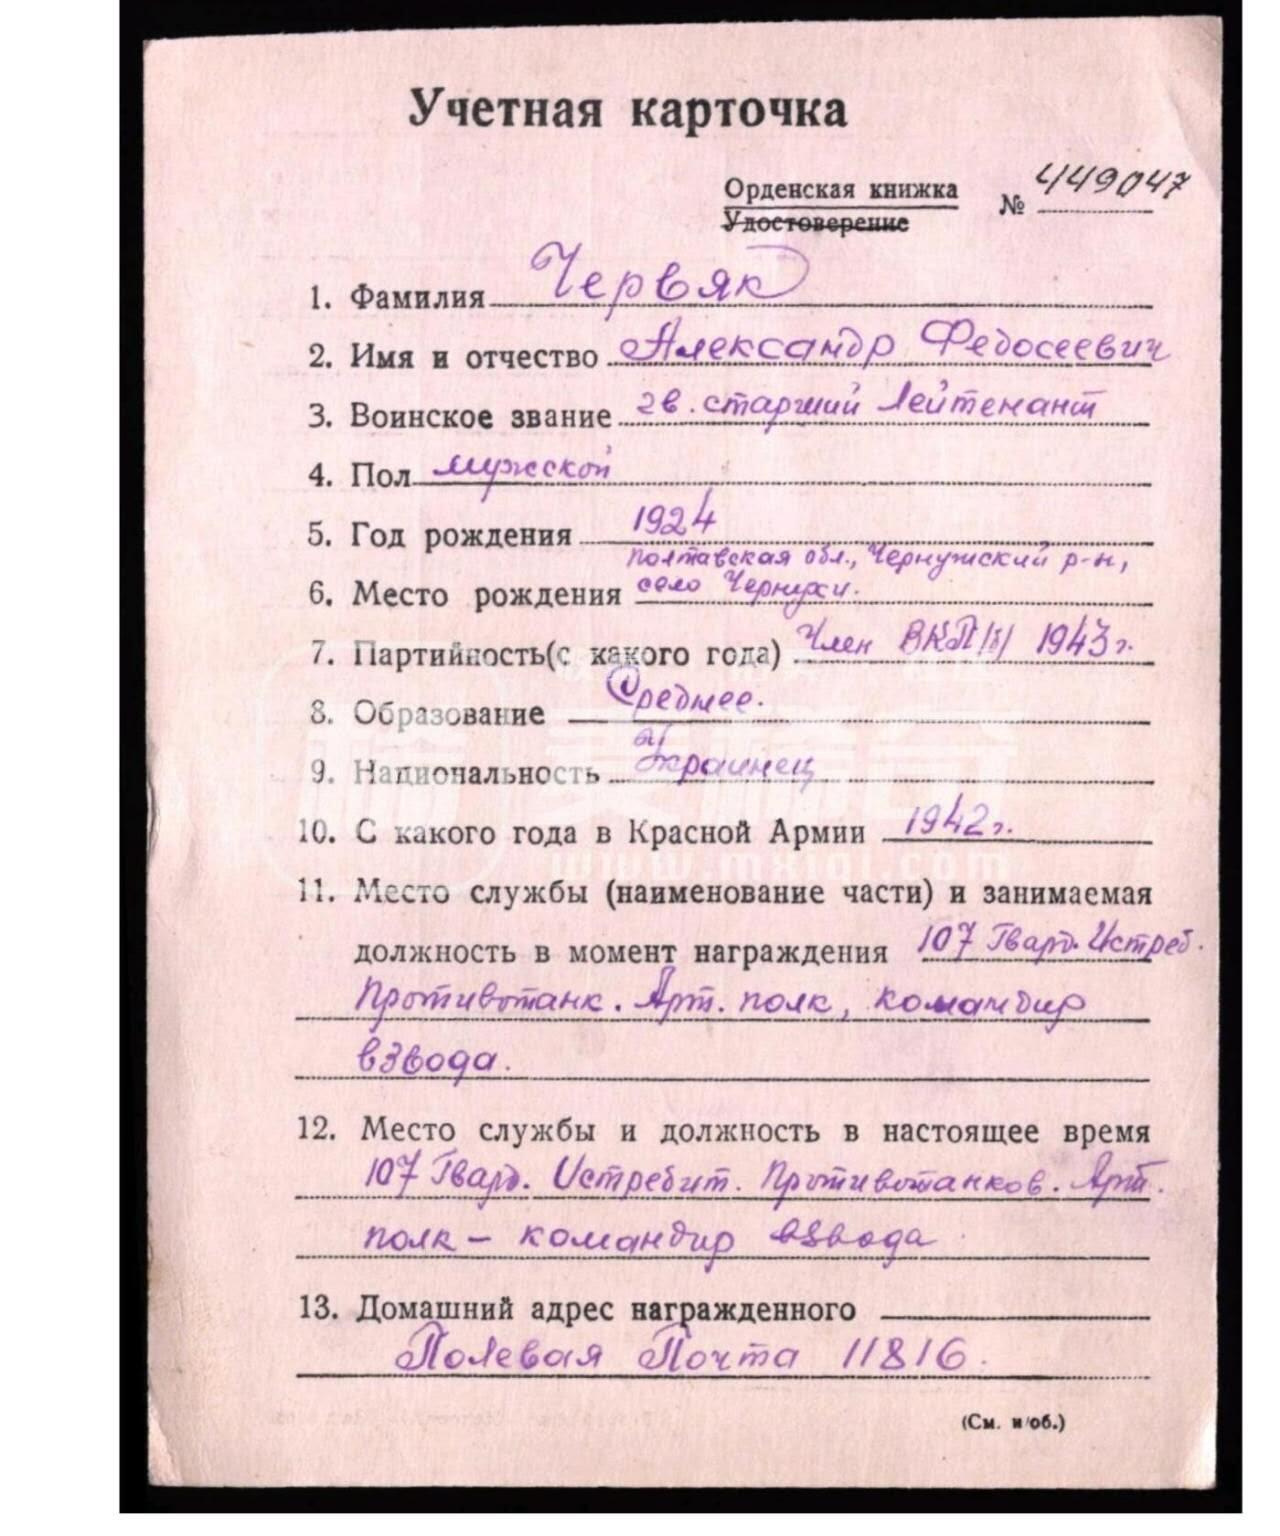 Учетная карточка
Орденская книжка № 449047
Удостоверение
1. Фамилия Червяк
2. Имя и отчество Александр Федосеевич
3. Воинское звание гв. старший лейтенант
4. Пол мужской
5. Год рождения 1924
Полтавская обл., Чернухский р-н,
6. Место рождения село Чернухи.
7. Партийность(с какого года) Член ВКП/б/ 1943 г.
8. Образование Среднее.
9. Национальность Украинец
10. С какого года в Красной Армии 1942 г.
www.mxiqi.com
11. Место службы (наименование части) и занимаемая
должность в момент награждения 107 Гвард. Истреб.
Противотанк. Арт. полк, командир
взвода.
12. Место службы и должность в настоящее время
107 Гвард. Истребит. Противотанков. Арт.
полк – командир взвода
13. Домашний адрес награжденного
Полевая Почта 11816.
(См. н/об.)